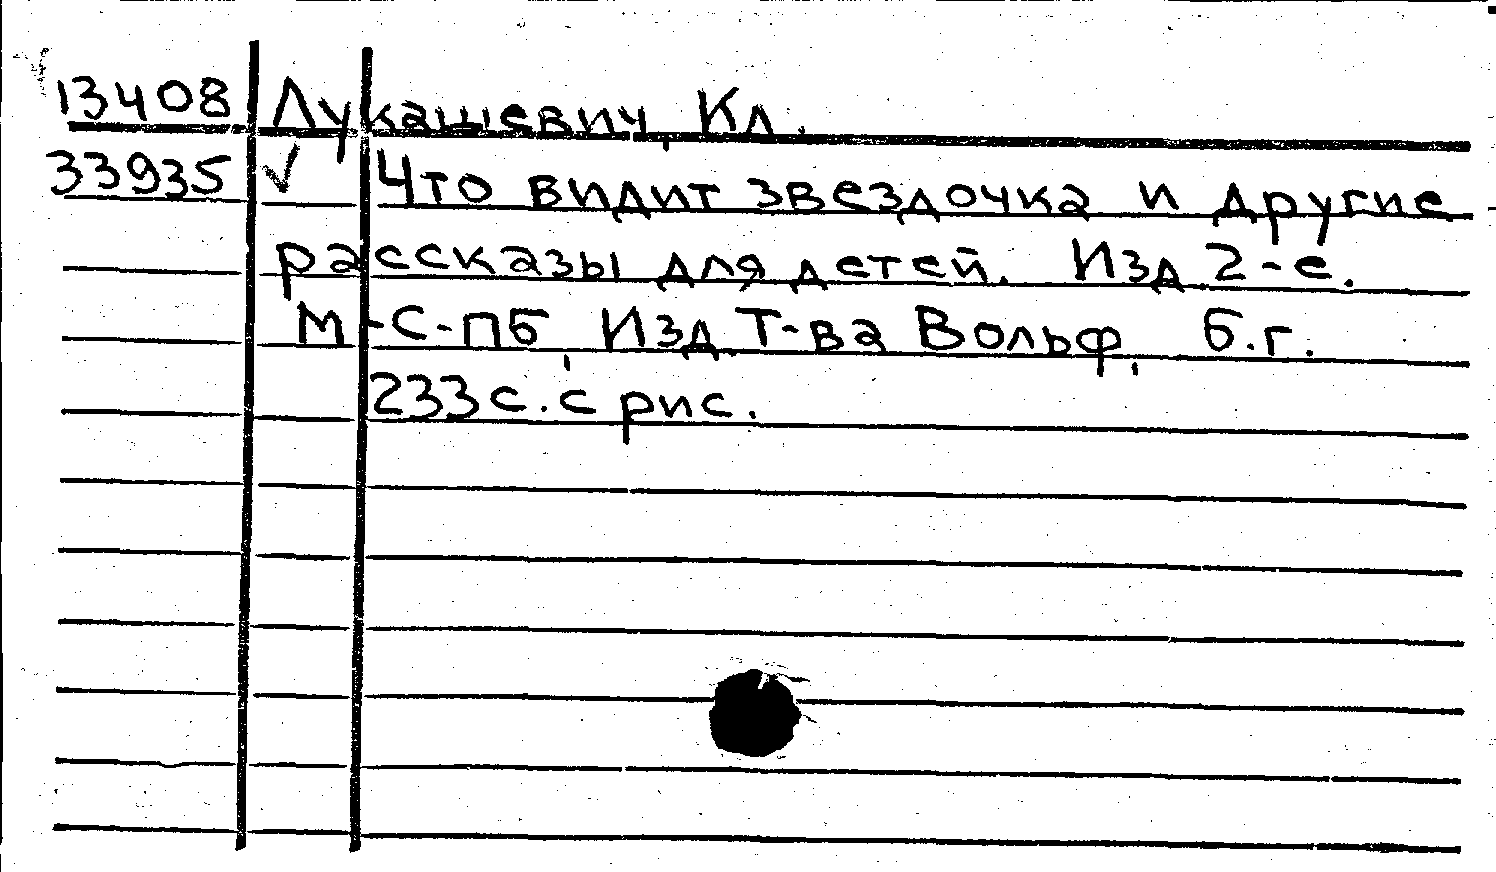 13408 Лукашевич, Кл.
33935 √ Что видит звездочка и другие
рассказы для детей. Изд 2-е.
М-С-пб, Изд. Т-ва Вольф, б.г.
233 с. с рис.